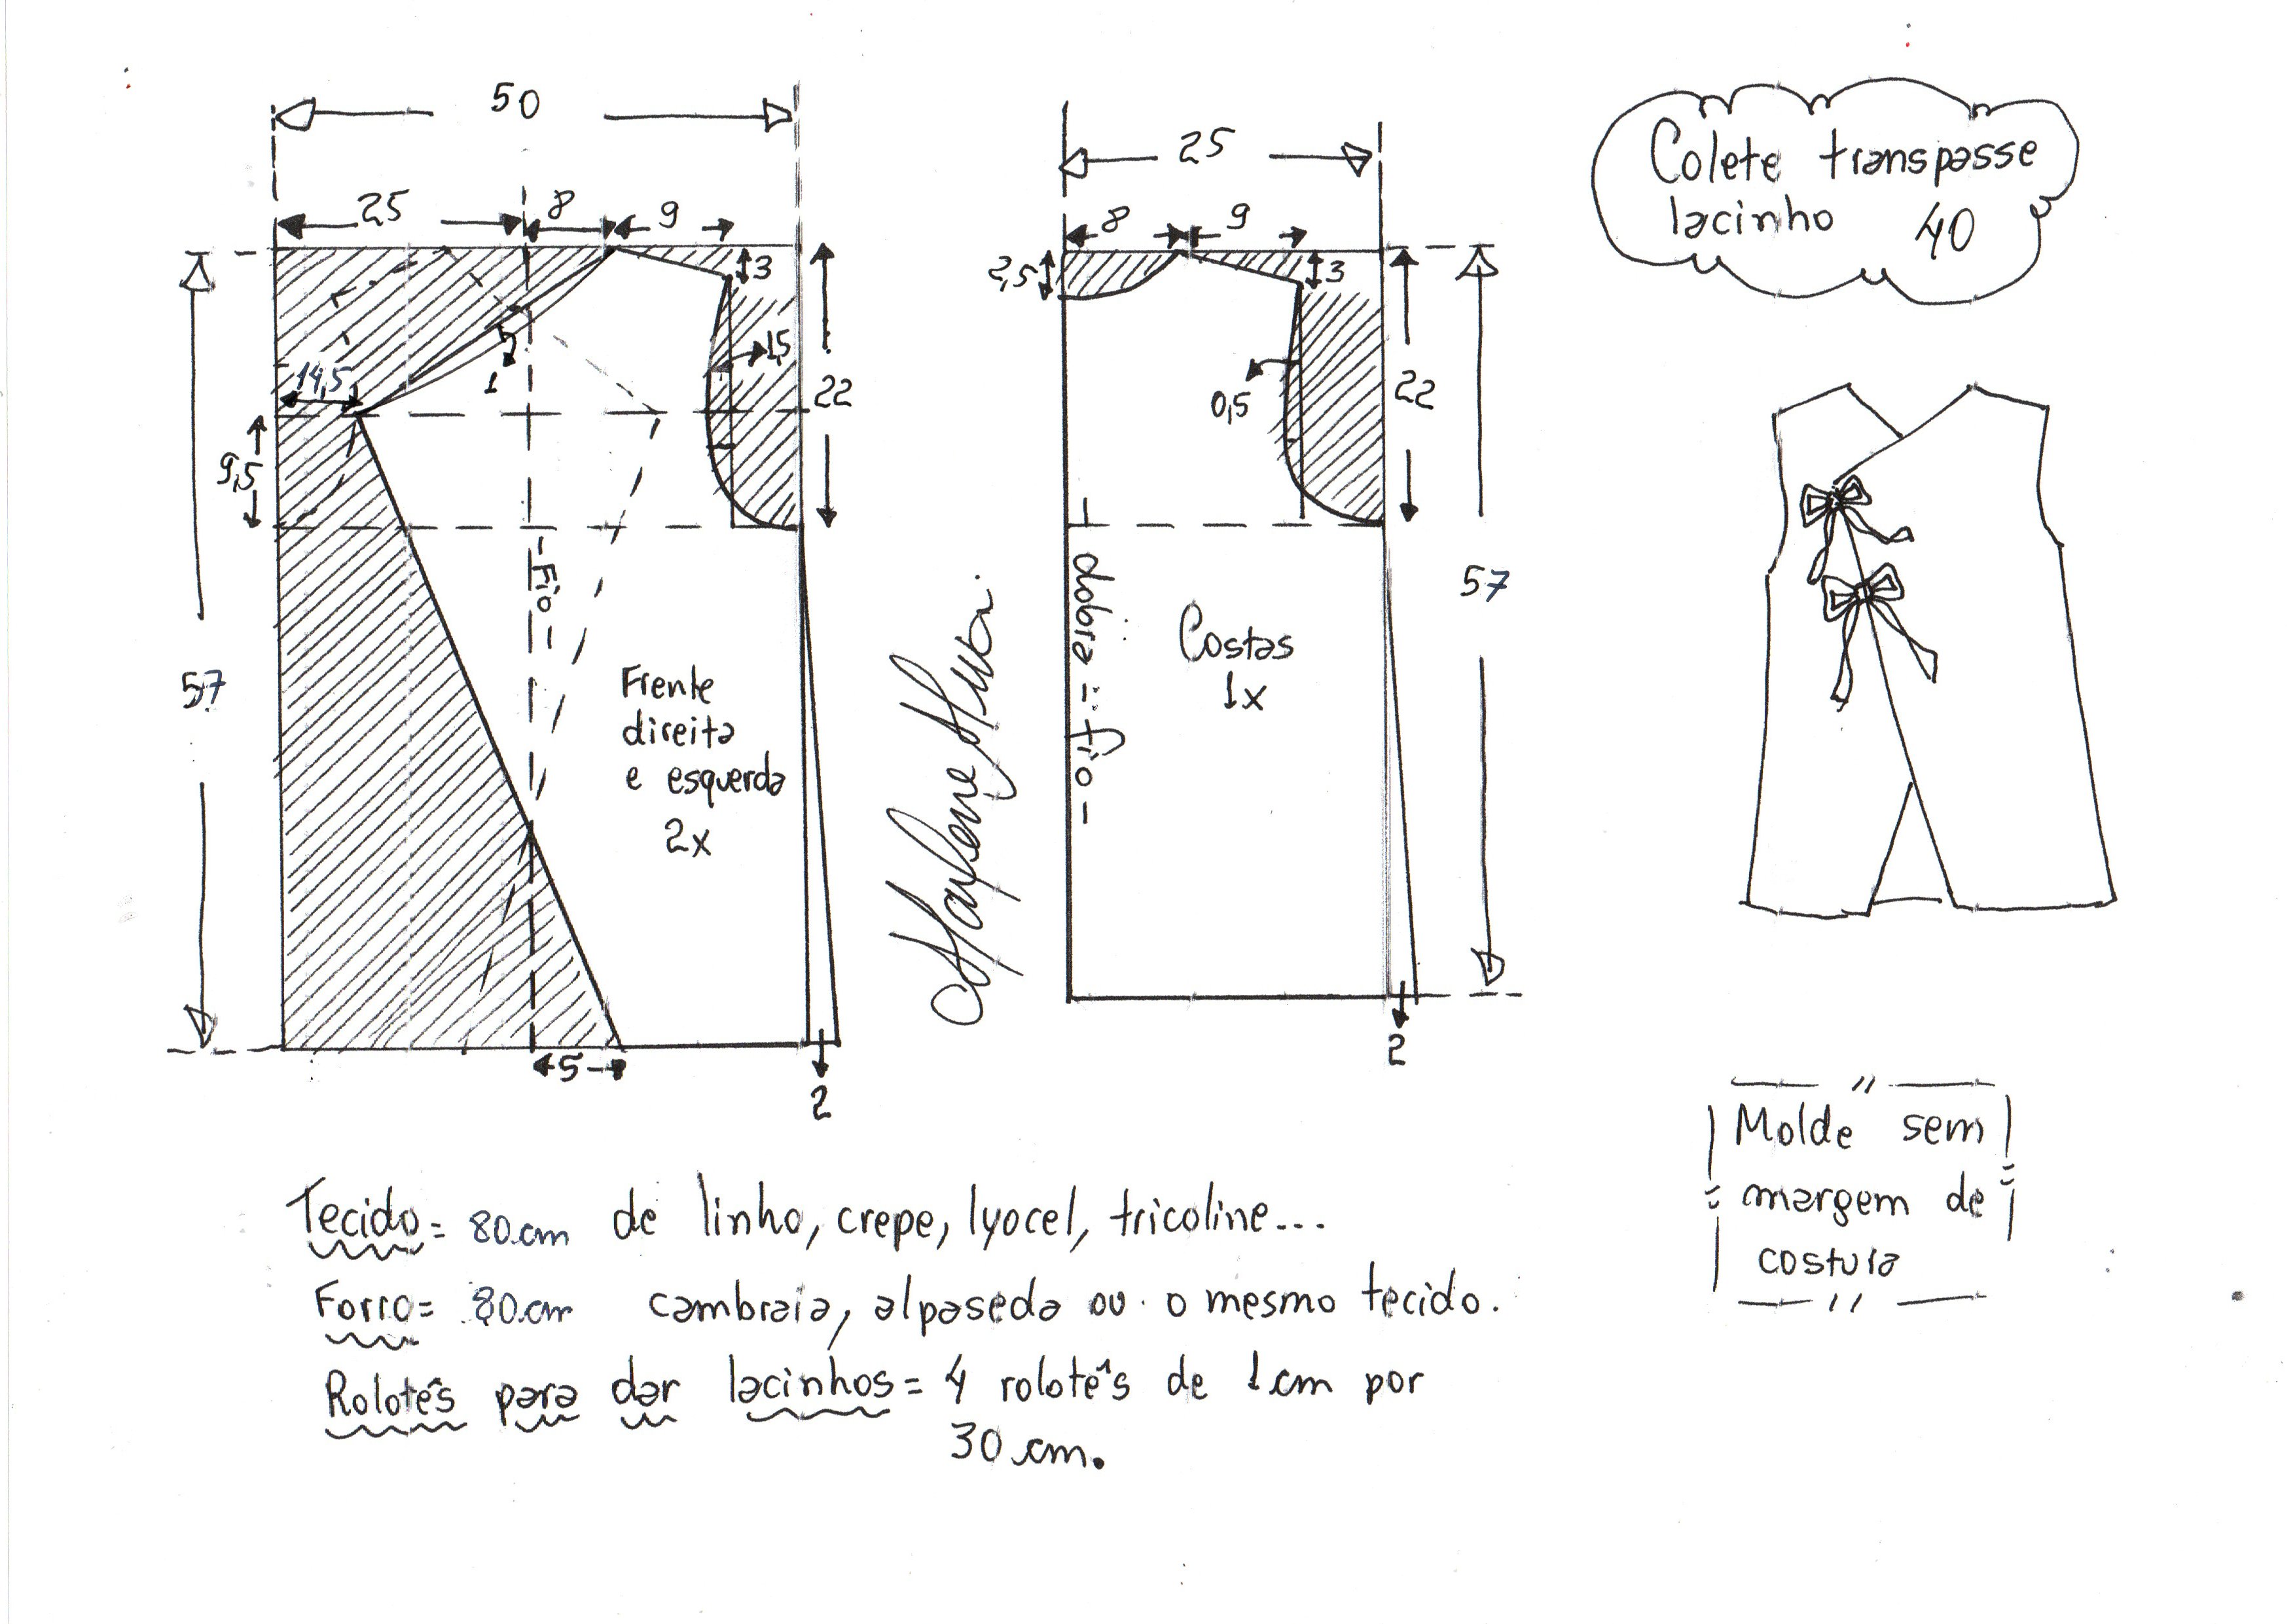 50
25
8
9
3
1
15
14,5
22
9,5
57
- Fio -
Frente
direita
e esquerda
2x
5
2
25
8
9
2,5
3
0,5
22
57
dobra = fio -
Costas
1x
2
Colete transpasse
lacinho 40
Molde sem
margem de
costura
Tecido = 80 cm de linho, crepe, lyocel, tricoline...
Forro = 80 cm cambraia, alpaseda ou o mesmo tecido.
Rolotês para dar lacinhos = 4 rolotês de 1 cm por
30 cm.